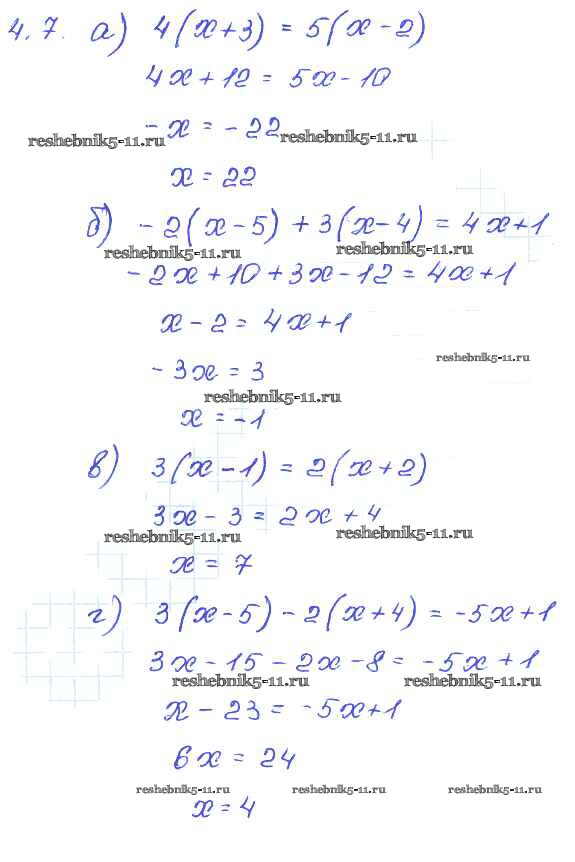 4.7. а) 4(x+3) = 5(x-2)
4x+12 = 5x-10
-x = -22
reshebnik5-11.ru reshebnik5-11.ru
x = 22
б) -2(x-5) + 3(x-4) = 4x+1
reshebnik5-11.ru reshebnik5-11.ru
-2x+10+3x-12 = 4x+1
x-2 = 4x+1
reshebnik5-11.ru
-3x = 3
reshebnik5-11.ru
x = -1
в) 3(x-1) = 2(x+2)
3x-3 = 2x+4
reshebnik5-11.ru reshebnik5-11.ru
x = 7
г) 3(x-5) - 2(x+4) = -5x+1
3x-15-2x-8 = -5x+1
reshebnik5-11.ru reshebnik5-11.ru
x-23 = -5x+1
6x = 24
reshebnik5-11.ru reshebnik5-11.ru reshebnik5-11.ru
x = 4